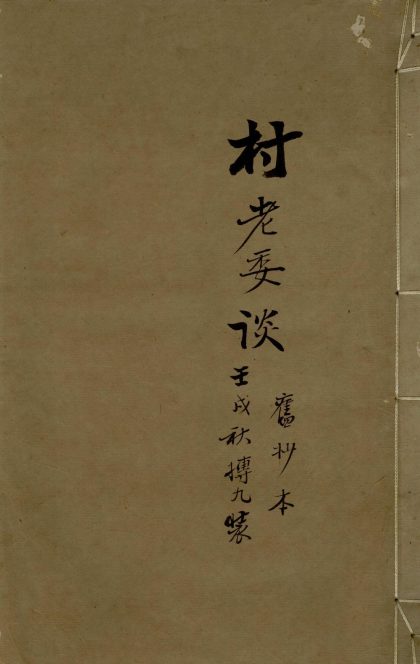 舊抄本
村老委谈
壬戌秋摶九裝